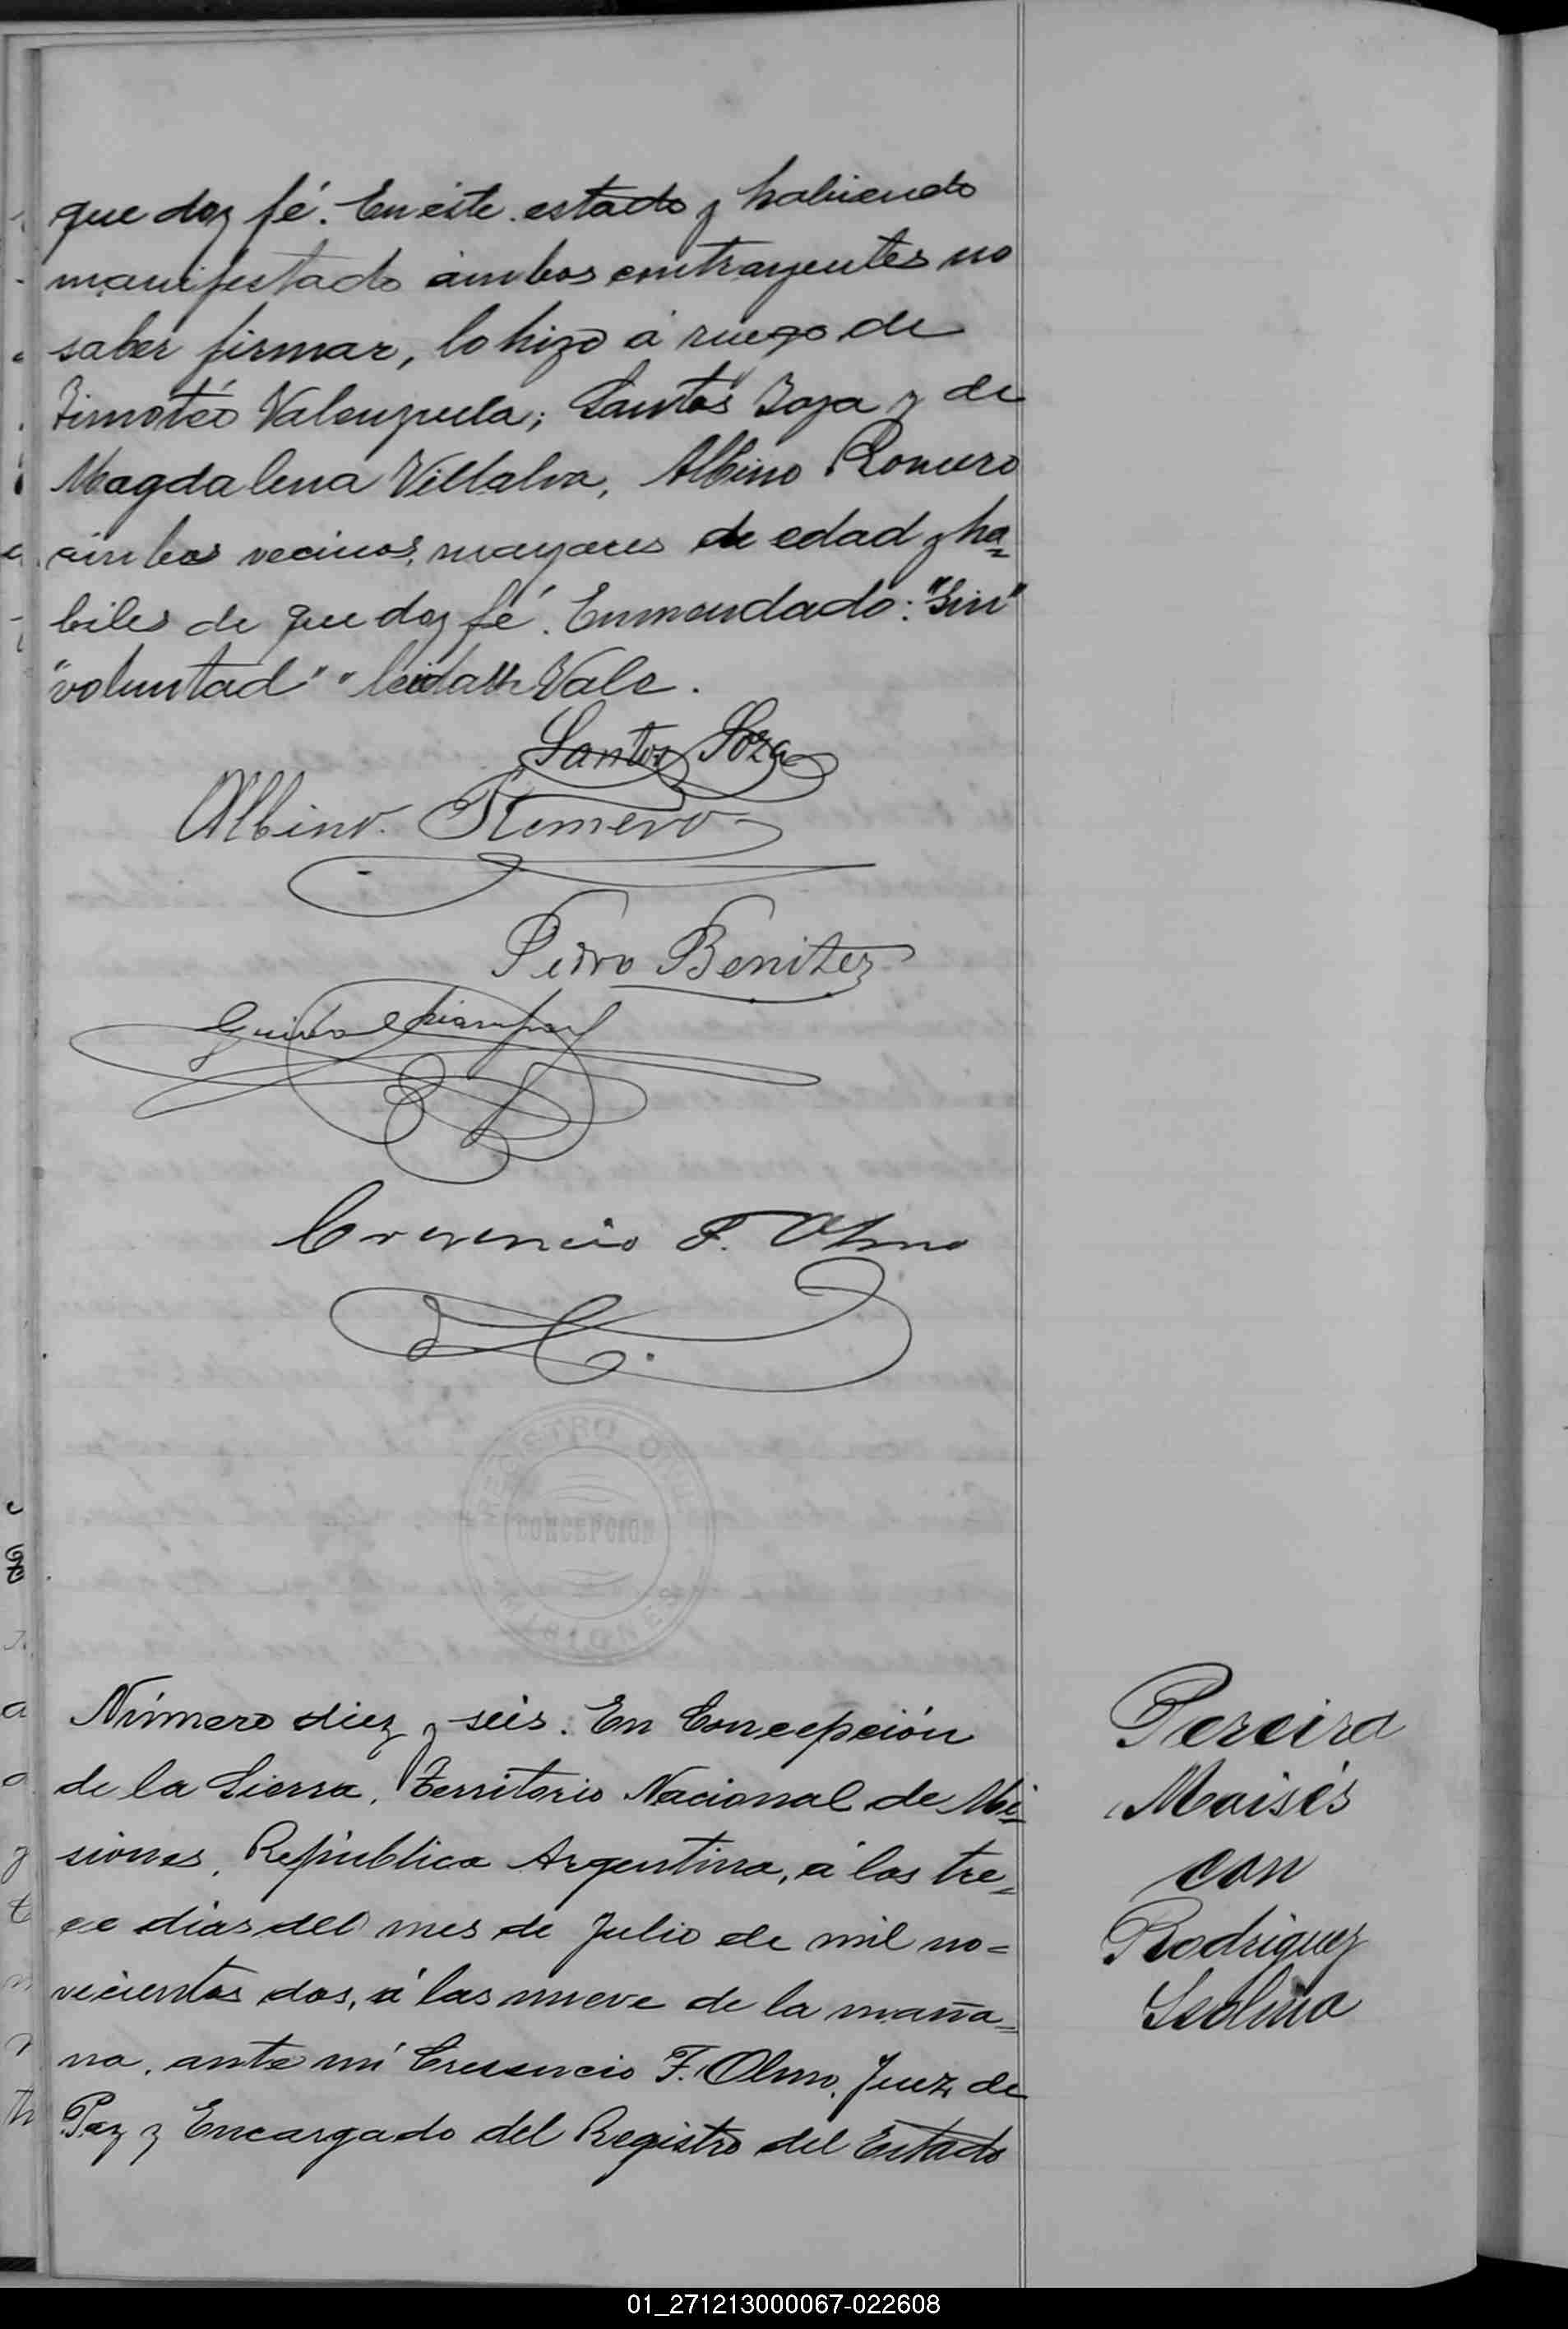 que doy fé. En éste estado y habiendo
manifestado ámbos contrayentes no
saber firmar, lo hizo á ruego de
Timotéo Valenzuela; Santos Soza y de
Magdalena Villalva, Albino Romero
ámbos vecinos, mayores de edad y ha=
biles de que doy fé. Enmendado: "Sin"
"voluntad" "leida" Vale.
Santos Soza
Albino Romero
Pedro Benitez
Guido
Cresencio F. Olmo
REGISTRO CIVIL
CONCEPCION
MISIONES
Número diez y seis. En Concepción
de la Sierra, Territorio Nacional de Mi=
siones, República Argentina, á los tre=
ce dias del mes de Julio de mil no=
vecientos dos, á las nueve de la maña=
na, ante mí Cresencio F. Olmo, Juez de
Paz y Encargado del Registro del Estado
Pereira
Moisés
con
Rodriguez
Isolina
01_271213000067-022608